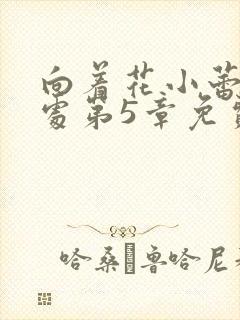 向着花小蕾
处第5章免
哈桑·鲁哈尼